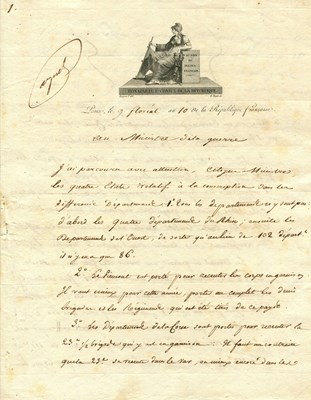 1.
AU NOM
DU PEUPLE
FRANÇAIS
BONAPARTE, 1er CONSUL DE LA RÉPUBLIQUE
Paris, le 9 floréal an 10 de la République française
au Ministre de la guerre
J'ai parcouru avec attention, Citoyen Ministre
les quatre Etats relatifs à la conscription dans les
différens Départements 1° Tous les départements n'y sont pas:
d'abord les quatre départements du Rhin, ensuite les
Départements de l'Ouest, de sorte qu'au lieu de 102 départ.ts
il n'y en a que 86.
2° Le Piémont est porté pour recruter les corps en garnison
Il vaut mieux pour cette année porter au complet les demi
brigades et les Régiments qui ont été tirés de ce pays
3° Les Départements de la Corse sont portés pour recruter la
23e ½ brigade qui y est en garnison. Il faut au contraire
que la 23e se recrute dans le Var, ou mieux encore dans le